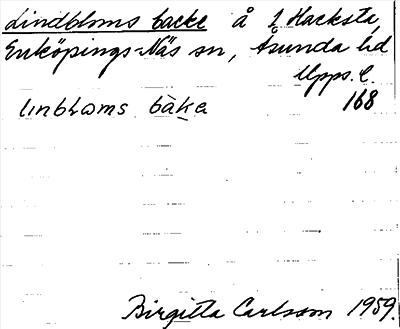 Lindbloms backe å 1 Hacksta,
Enköpings-Näs sn, Åsunda hd
Upps. l.
lınbɫωms bàḵa 168
Birgitta Carlsson 1959.